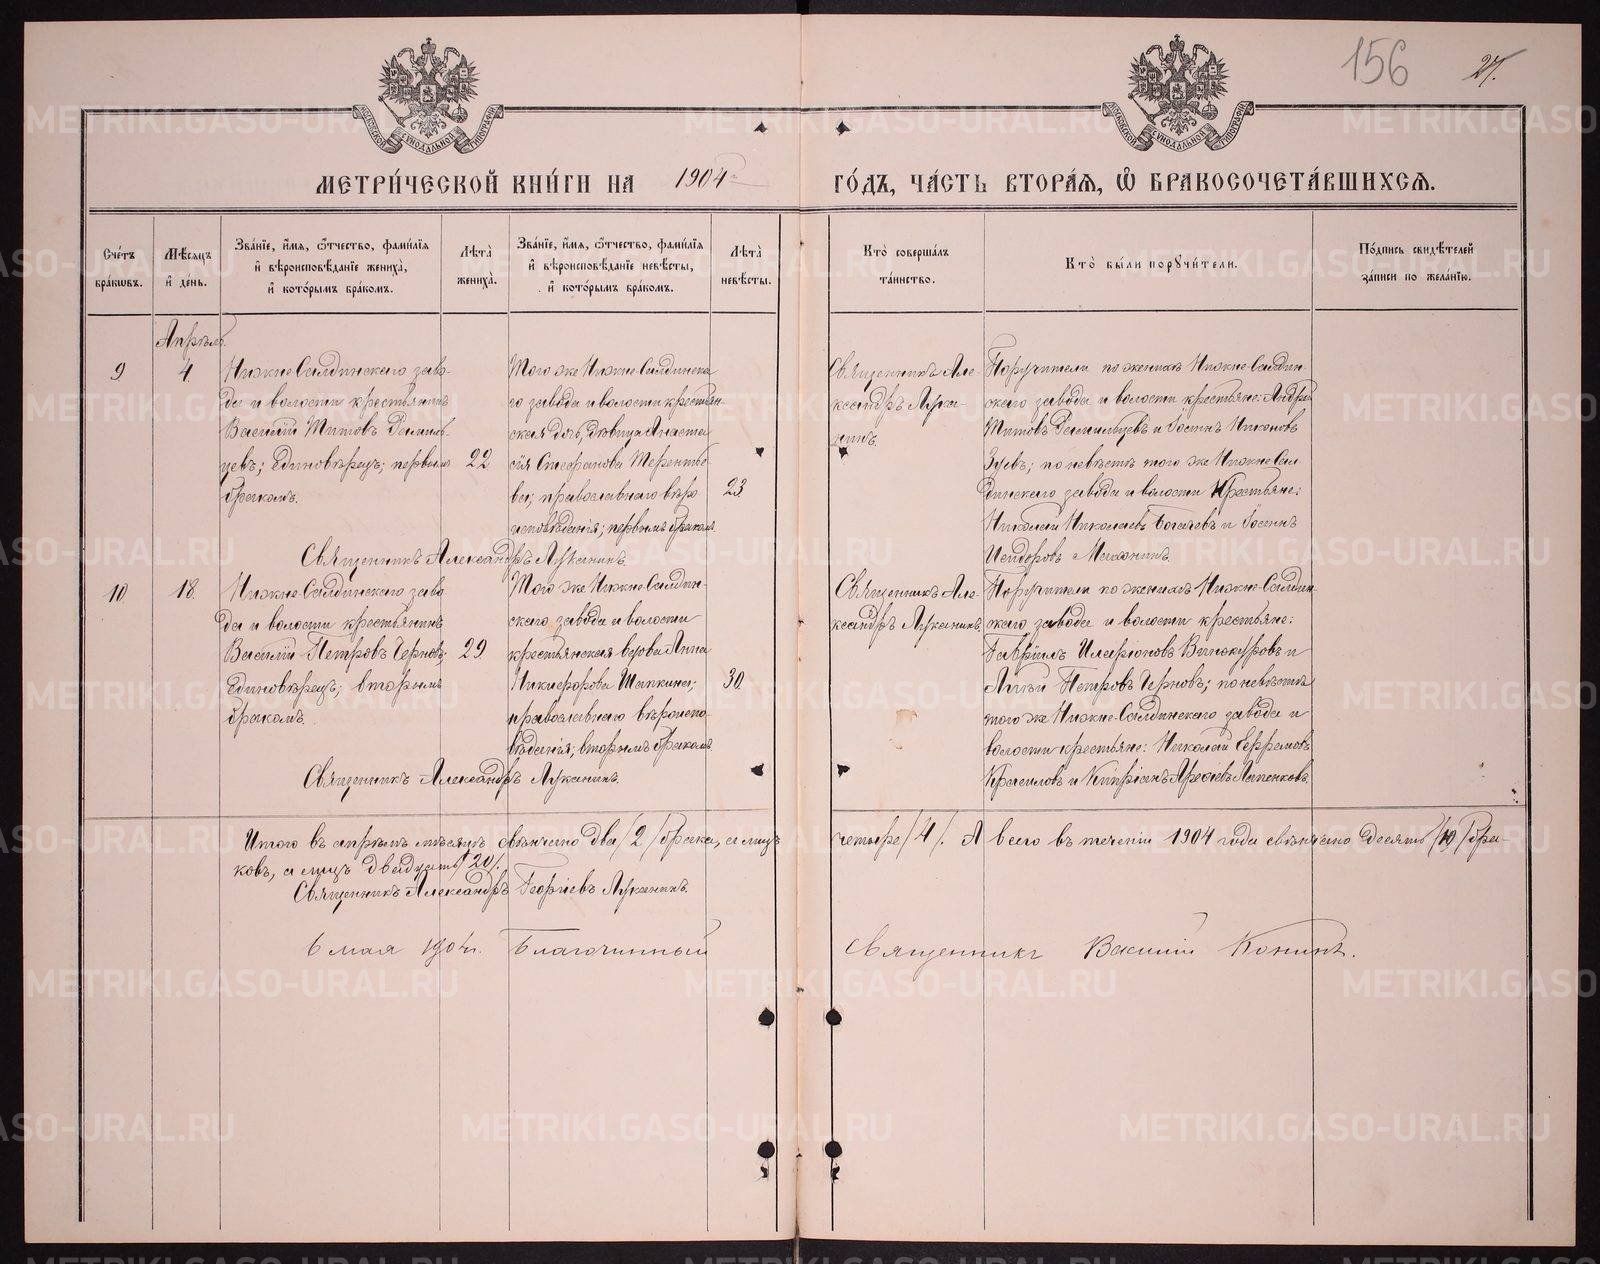 156
27.
МЕТРИ́ЧЕСКОЙ КНИ́ГИ НА 1904 ГО́ДЪ, ЧА́СТЬ ВТОРА́Я, Ѡ БРАКОСОЧЕТА́ВШИХСЯ.
Сче́тъ бра́ковъ.
Мѣ́сяцъ и҆ де́нь.
Зва́нїе, и҆́мя, ѻ҆́тчество, фами́лїя
и҆ вѣроисповѣ́данїе жениха̀,
и҆ кото́рымъ бра́комъ.
Лѣта̀ жениха̀.
Зва́нїе, и҆́мя, ѻ҆́тчество, фами́лїя
и҆ вѣроисповѣ́данїе невѣ́сты,
и҆ кото́рымъ бра́комъ.
Лѣта̀ невѣ́сты.
Кто̀ соверша́лъ
та́инство.
Кто̀ бы́ли поручи́тели.
По́дпись свидѣ́телей
за́писи по жела́нїю.
Апрѣль.
9
4.
Нижне-Салдинскаго заво-
да и волости крестьянинъ
Василій Титовъ
цевъ; Единовѣрецъ; первымъ
бракомъ.
22
Того же Нижне-Салдинска
го завода и волости крестьян-
ская дочь, дѣвица Анаста
сія Стефанова Теренть
ва; православнаго вѣро
исповѣданія; первымъ бракомъ.
23.
Священникъ Але-
ксандръ Лука-
нинъ.
Поручители по женихѣ Нижне-Салдин-
скаго завода и волости крестьяне: Андрей
Титовъ и Іосифъ Никоновъ
Зуевъ; по невѣстѣ того же Нижне-Сал
динскаго завода и волости Крестьяне:
Николай Николаевъ Богачевъ и Іосифъ
Исидоровъ
Священникъ Александръ Луканинъ.
10.
18.
Нижне-Салдинскаго заво
да и волости крестьянинъ
Василій Петровъ Черновъ;
Единовѣрецъ; вторымъ
бракомъ.
29
Того же Нижне-Салдин-
скаго завода и волости
крестьянская вдова Анна
Никифорова Шапкина;
православнаго вѣроиспо-
вѣданія; вторымъ бракомъ
30.
Священникъ Але-
ксандръ Луканинъ.
Поручители по женихѣ Нижне-Салдин
скаго завода и волости крестьяне:
Гавріилъ Иларіоновъ Винокуровъ и
Петровъ Черновъ; по невѣстѣ
того же Нижне-Салдинскаго завода и
волости крестьяне: Николай Ефремовъ
Красиловъ и Кипріанъ Лапенковъ.
Священникъ Александръ Луканинъ.
Итого въ апрѣлѣ мѣсяцѣ свѣнчано два /2/ брака, а лицъ четыре /4/. А всего въ теченіи 1904 года свѣнчано десять /10/ бра-
ковъ, а лицъ двадцать /20/.
Священникъ Александръ Георгіевъ Луканинъ.
6 мая 1904 г. Благочинный Священникъ Василій Конинъ.